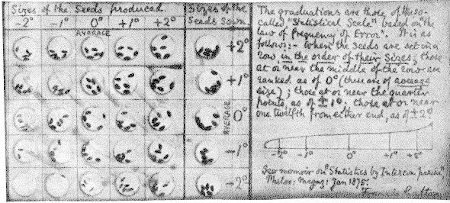 Sizes of the Seeds produced
-2° -1° 0° +1° +2°
AVERAGE
Sizes of the
Seeds Sown
+2°
+1°
AVERAGE 0°
-1°
-2°
The graduations are those of the so-
called "Statistical Scale" based on the
law of frequency of Error". It is as
follows:- When the seeds are set in a
row in the order of their Sizes, those
at or near the middle of the row are
ranked as of 0° (these are of average
size); those at or near the quarter
points, as of ±1°; those at or near
one twelfth from either end, as of ±2°
-2° -1° 0° +1° +2°
See memoir on "Statistics by Intercomparison"
Philos: Magaz: Jan 1875.
Francis Galton